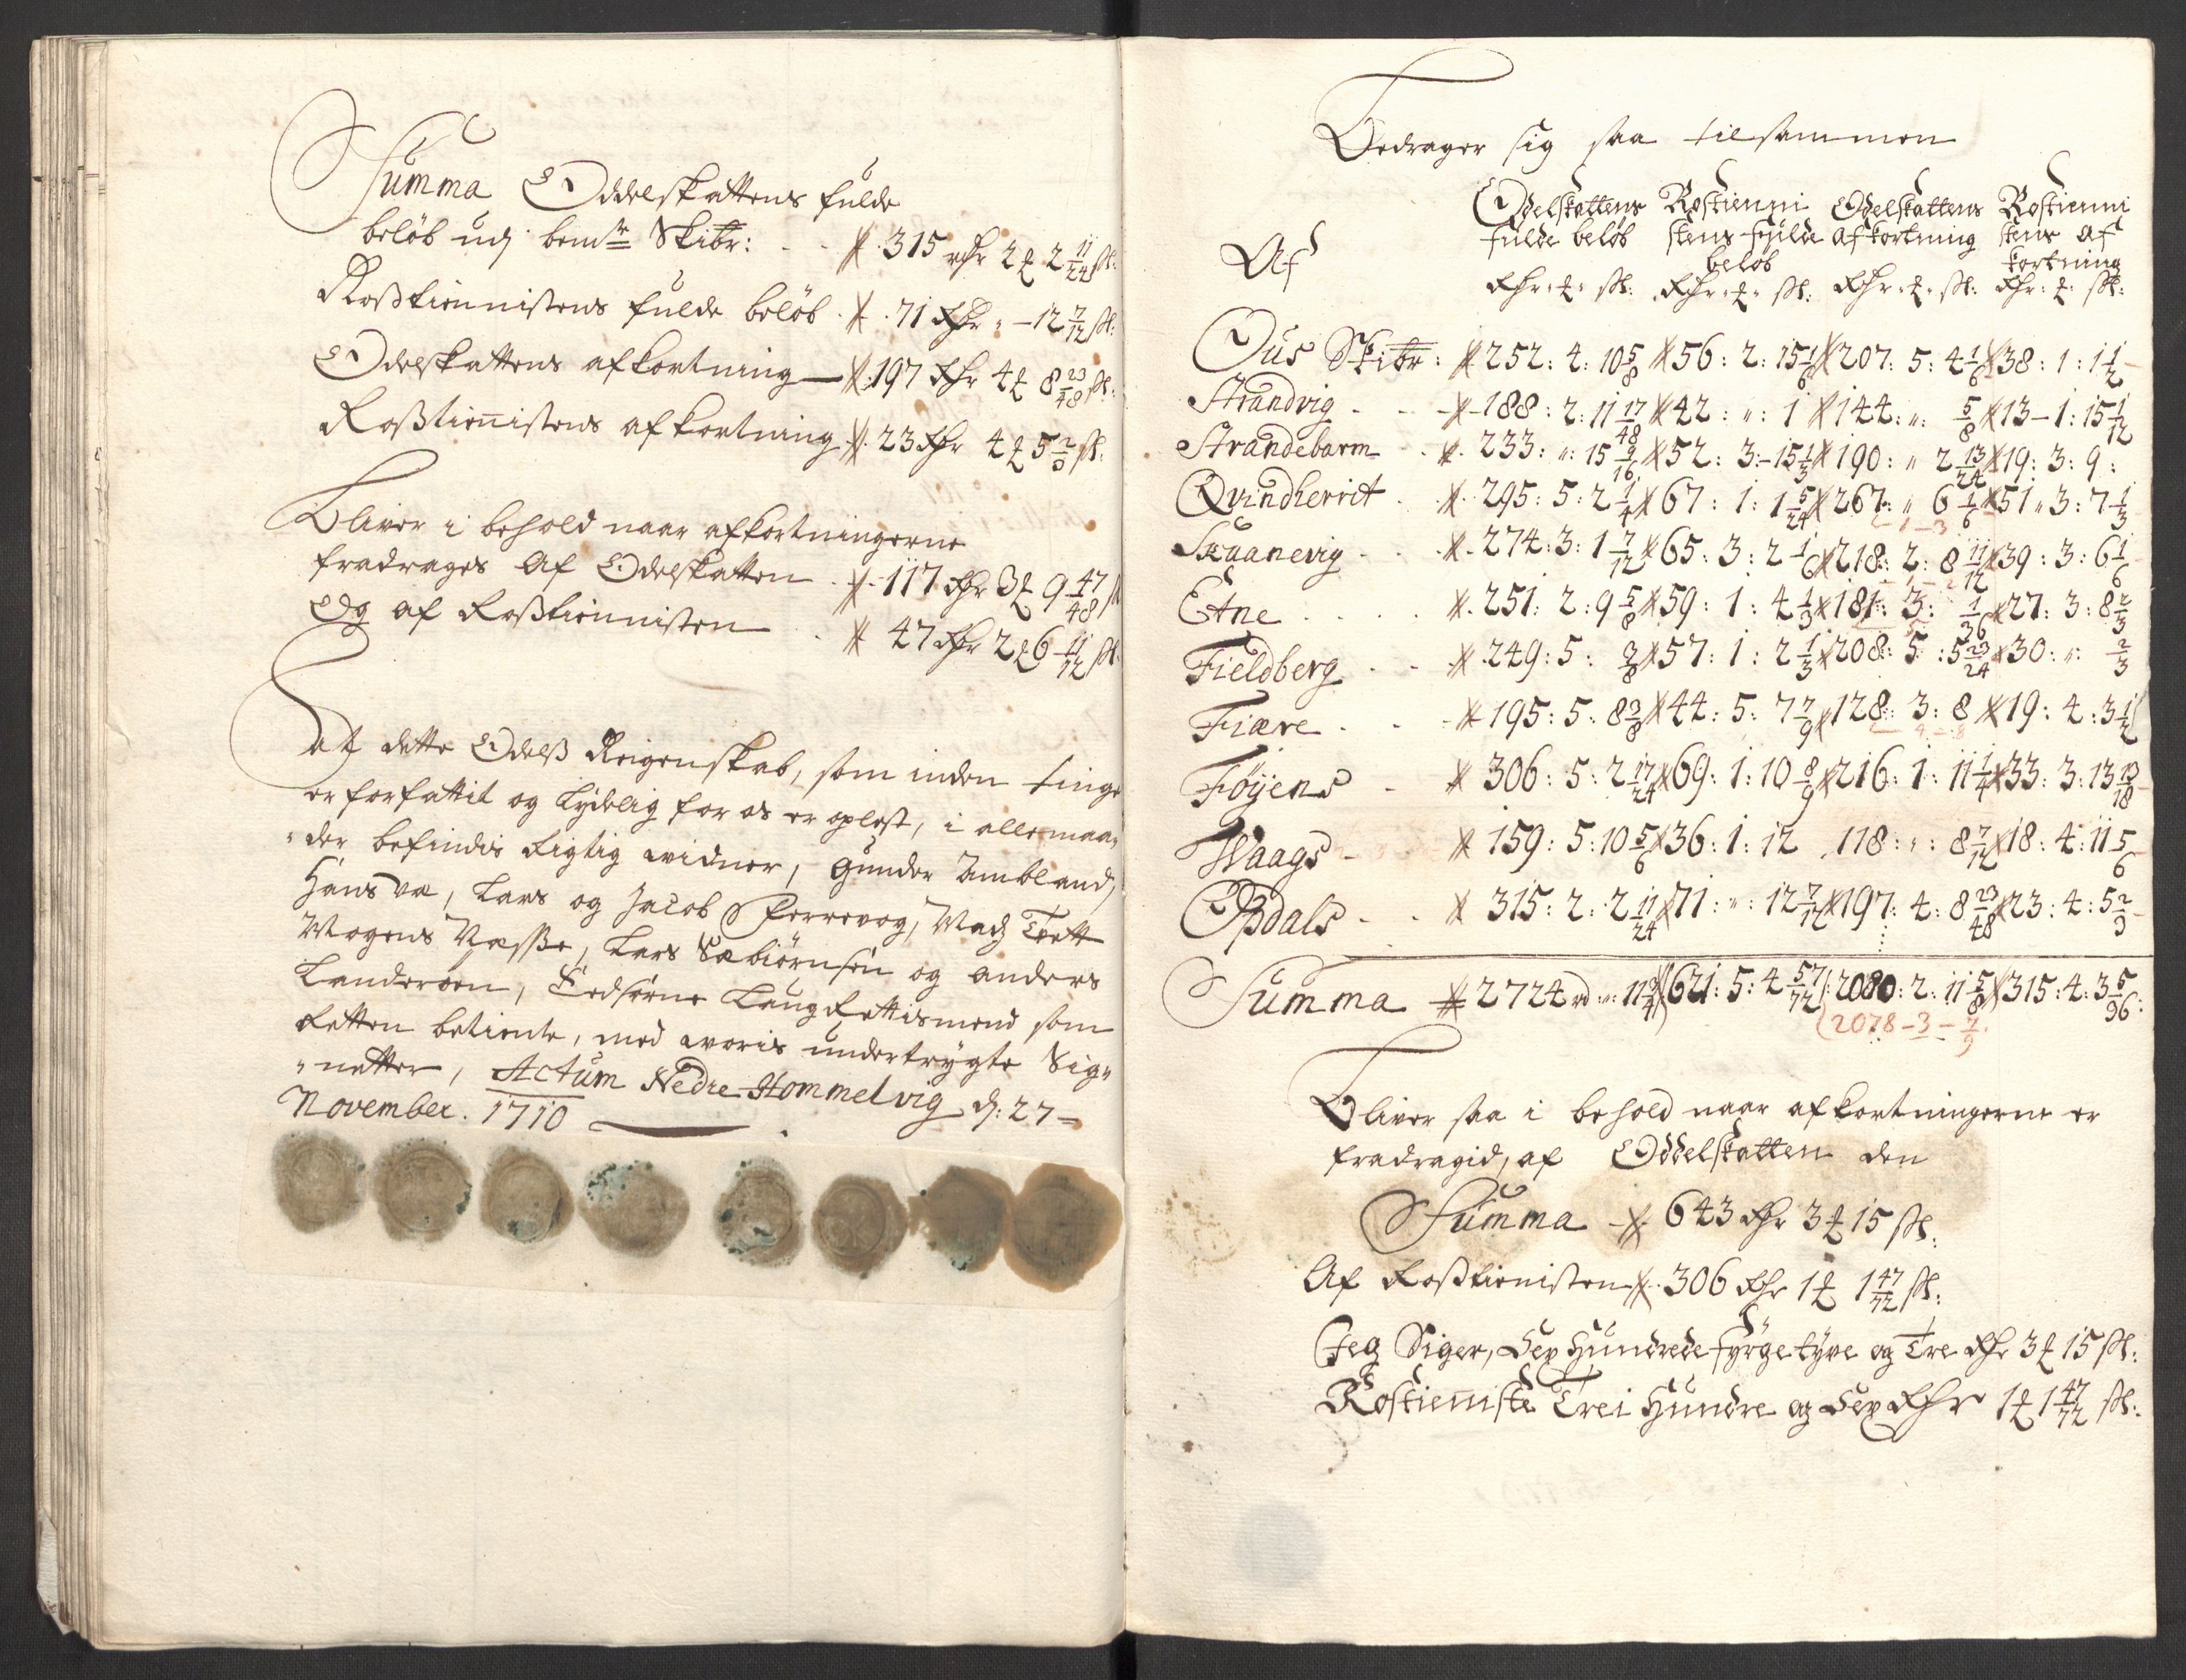 Summa Oddelskattens fulde
beløb udj bemte Skibr: - - 315 rdr 2 ₰ 2 11/24 ss:
Rosstiennistens fulde beløb . 71 Rdr „ – 12 7/12 ss:
Odelskattens afkortning — 197 Rdr 4 ₰ 8 23/48 ss:
Rosstiennistens afkortning . 23 Rdr 4 ₰ 5 2/3 ss.
Bliver i behold naar afkortningerne
fradrages Af Odelskatten . 117 Rdr 3 ₰ 9 47/48 ss
Og af Rosstiennisten . 47 Rdr 2 ₰ 6 11/12 ss.
At dette Odelss Reigenskab, som inden tinge
er forfattit og Lydelig for os er oplest, i alle maa„
„der befindis Rigtig vidner, Gunder Ambland,
Hans , Lars og Jacob , Madz Tvett
Mogens Næsse, Lars Sæbiørnsøn og anders
Landerøen, Sedsorne Laug Rettismend som
Retten betiente, med voris undertrygte Sig„
„netter, Actum Nedre Hommelvig d: 27 =
November. 1710
Bedrager sig saa tilsammen
Af Odelskattens fulde beløb Rostienni stens fulde beløb Odelskattens afkortning Rostienni stens af kortning
Rdr: ₰: ss: Rdr: ₰: ss: Rdr: ₰: ss: Rdr: ₰: ss:
Ous Skibr: 252: 4: 10 5/8 56: 2: 15 1/6 207: 5: 4 1/6 38: 1: 1 1/2
Strandvig - - 188: 2: 11 17/48 42: „: 1 144: „: 5/8 13 – 1: 15 1/12
Strandebarm - 233: „: 15 9/16 52: 3: 15 1/3 190: „ 2 13/24 19: 3: 9:
Qvindherrit . 295: 5: 2 1/4 67: 1: 1 5/24 267: „ 6 1/6 51 „ 3: 7 1/3
Skaanevig . . 274: 3: 1 7/12 65: 3: 2 1/6 218: 2: 8 11/12 39: 3: 6 1/6
Etne . . . . 251: 2: 9 5/8 59: 1: 4 1/3 181: 3: 1/36 27: 3: 8 2/3
Fieldberg - - 249: 5: 3/8 57: 1: 2 1/3 208: 5: 5 23/24 30: „: 2/3
Fiære . - 195: 5: 8 3/8 44: 5: 7 7/9 128: 3: 8 19: 4: 3 1/2
Føyens - 306: 5: 2 17/24 69: 1: 10 8/9 216: 1: 11 1/4 33: 3: 13 13/18
Waags - 159: 5: 10 5/6 36: 1: 12 118: „: 8 7/12 18: 4: 11 5/6
Opdals - . 315: 2: 2 11/24 71: „: 12 7/12 197: 4: 8 23/48 23: 4: 5 2/3
Summa 2724 rd „: 11 3/4 621: 5: 4 57/72 2080: 2: 11 5/8 315: 4: 3 5/36:
(2078 – 3 – 7/9.
Bliver saa i behold naar afkortningerne er
fradragid, af Oddelskatten den
Summa 643 Rdr 3 ₰ 15 ss.
Af Rosstienisten . 306 Rdr 1 ₰ 1 47/72 ss:
Jeg Siger, Sex Hundrede fyrgetyve og Tre Rdr 3 ₰ 15 ss:
Rostienniste Trei Hundre og Sex Rdr 1 ₰ 1 47/72 ss: